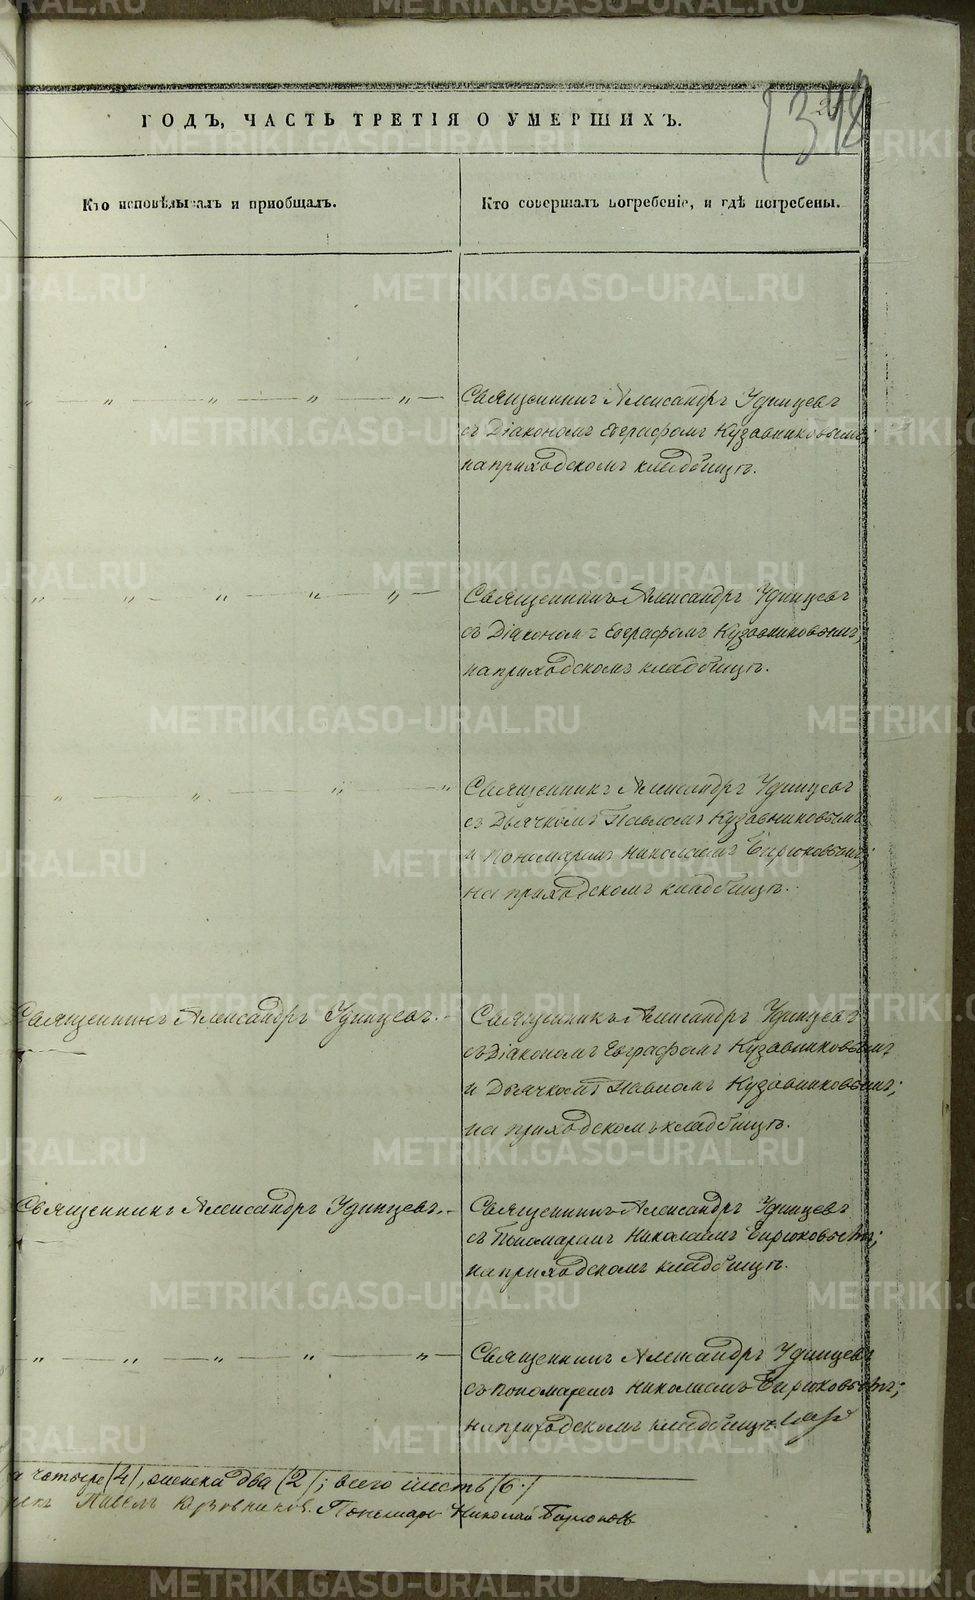 ГОДЪ, ЧАСТЬ ТРЕТІЯ О УМЕРШИХЪ.
Кто исповѣдывалъ и пріобщалъ.
Кто совершалъ погребеніе, и гдѣ погребены.
Священникъ Александръ Удинцевъ
съ Діакономъ Евграфомъ Кузовниковымъ;
на приходскомъ кладбищѣ.
Священникъ Александръ Удинцевъ
съ Діакономъ Евграфомъ Кузовниковымъ;
на приходскомъ кладбищѣ.
Священникъ Александръ Удинцевъ
съ Дьячкомъ Павломъ Кузовниковымъ
и Пономаремъ Николаемъ Бирюковымъ;
на приходскомъ кладбищѣ.
Священникъ Александръ Удинцевъ.
Священникъ Александръ Удинцевъ
съ Діакономъ Евграфомъ Кузовниковымъ
и Дьячкомъ Павломъ Кузовниковымъ;
на приходскомъ кладбищѣ.
Священникъ Александръ Удинцевъ.
Священникъ Александръ Удинцевъ
съ Пономаремъ Николаемъ Бирюковымъ;
на приходскомъ кладбищѣ.
Священникъ Александръ Удинцевъ
съ Пономаремъ Николаемъ Бирюковымъ;
на приходскомъ кладбищѣ.
четыре (4), женска два (2); всего шесть (6.)
Павелъ Кузовниковъ. Пономарь Николай Бирюковъ
METRIKI.GASO-URAL.RU